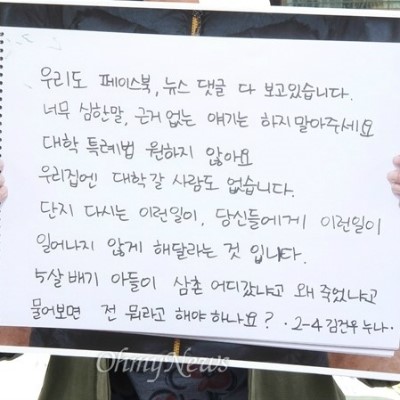 우리도 페이스북, 뉴스 댓글 다 보고있습니다.
너무 심한말, 근거 없는 얘기는 하지말아주세요
대학 특례법 원하지 않아요
우리집엔 대학갈 사람도 없습니다.
단지 다시는 이런일이, 당신들에게 이런일이
일어나지 않게 해달라는 것 입니다.
5살 배기 아들이 삼촌 어디갔냐고 왜 죽었냐고
물어보면 전 뭐라고 해야 하나요? · 2-4 김건우 누나.
OhmyNews